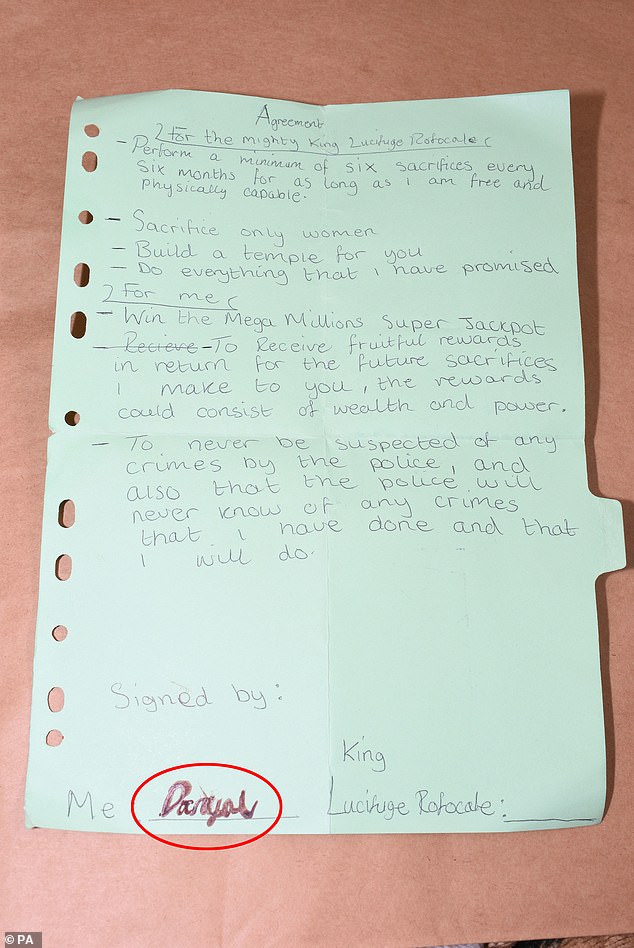 Agreement
2 For the mighty King Lucifuge Rofocale (
- Perform a minimum of six sacrifices every
six months for as long as i am free and
physically capable.
- Sacrifice only women
- Build a temple for you
- Do everything that i have promised
2 For me (
- Win the Mega Millions Super Jackpot
- Recieve - To Receive fruitful rewards
in return for the future sacrifices
I make to you, the rewards
could consist of wealth and power.
- To never be suspected of any
crimes by the police, and
also that the police will
never know of any crimes
that I have done and that
I will do.
Signed by:
King
Me Lucifuge Rofocale:
PA